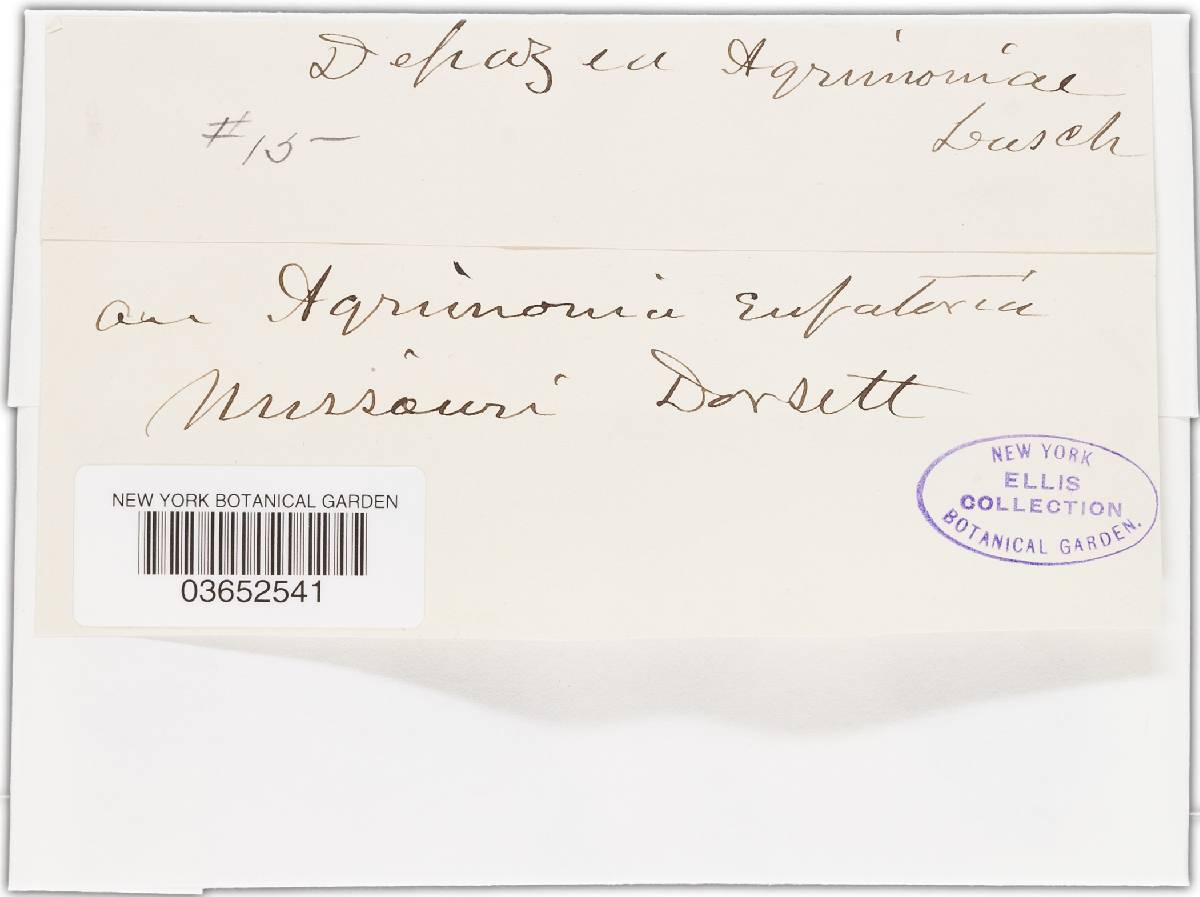 Depazea Agrimoniae
Lasch
#15
on Agrimonia Eupatoria
Missouri Dorsett
NEW YORK BOTANICAL GARDEN
03652541
NEW YORK
ELLIS
COLLECTION
BOTANICAL GARDEN.